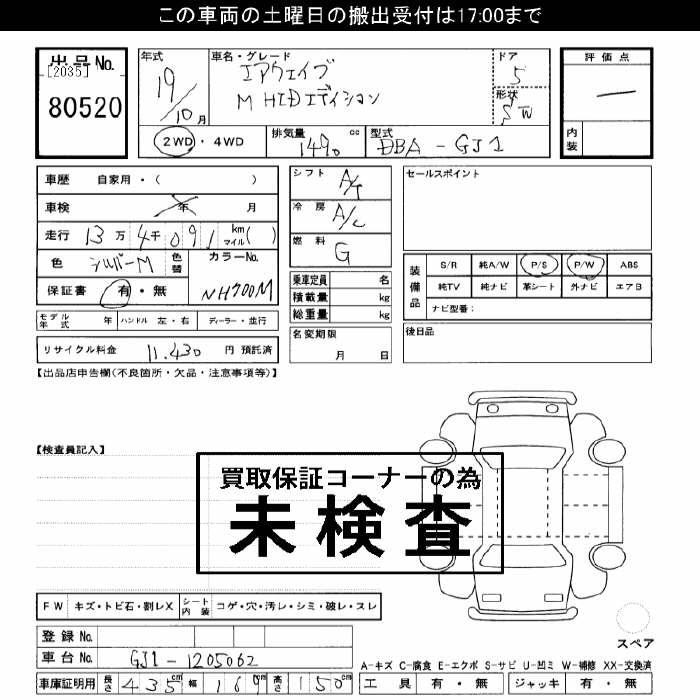 この車両の土曜日の搬出受付は17:00まで
出品No.
[2035]
80520
年式
19/10月
車名・グレード
エアウェイブ
M HIDエディション
ドア
5
形状
SW
評価点
―
内装
2WD・4WD
排気量
1490 cc
型式
DBA-GJ1
車歴 自家用・( )
車検 年 月
走行 13万4千091 km マイル( )
色 シルバーM 色替 カラーNo. NH700M
保証書 有・無
モデル年式 年 ハンドル 左・右 ディーラー・並行
リサイクル料金 11,430 円 預託済
シフト A/T
冷房 A/C
燃料 G
乗車定員 名
積載量 kg
総重量 kg
名変期限
月 日
セールスポイント
装備品
S/R 純A/W P/S P/W ABS
純TV 純ナビ 革シート 外ナビ エアB
ナビ型番:
後日品
【出品店申告欄(不良箇所・欠品・注意事項等)】
【検査員記入】
買取保証コーナーの為
未検査
FW キズ・トビ石・割レX シート内装 コゲ・穴・汚レ・シミ・破レ・スレ
登録No.
車台No. GJ1-1205062
車庫証明用 長さ 435cm 幅 169cm 高さ 150cm
スペア
A-キズ C-腐食 E-エクボ S-サビ U-凹ミ W-補修 XX-交換済
工具 有・無 ジャッキ 有・無